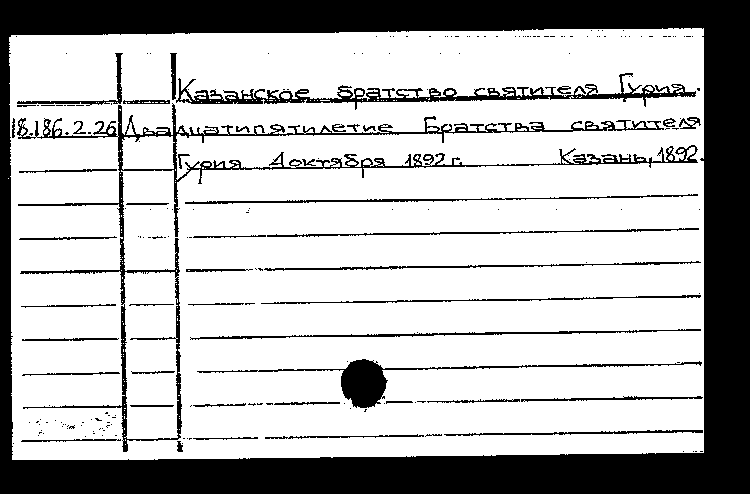 Казанское братство святителя Гурия.
18.186.2.26 Двадцатипятилетие Братства святителя
Гурия 4 октября 1892 г. Казань, 1892.